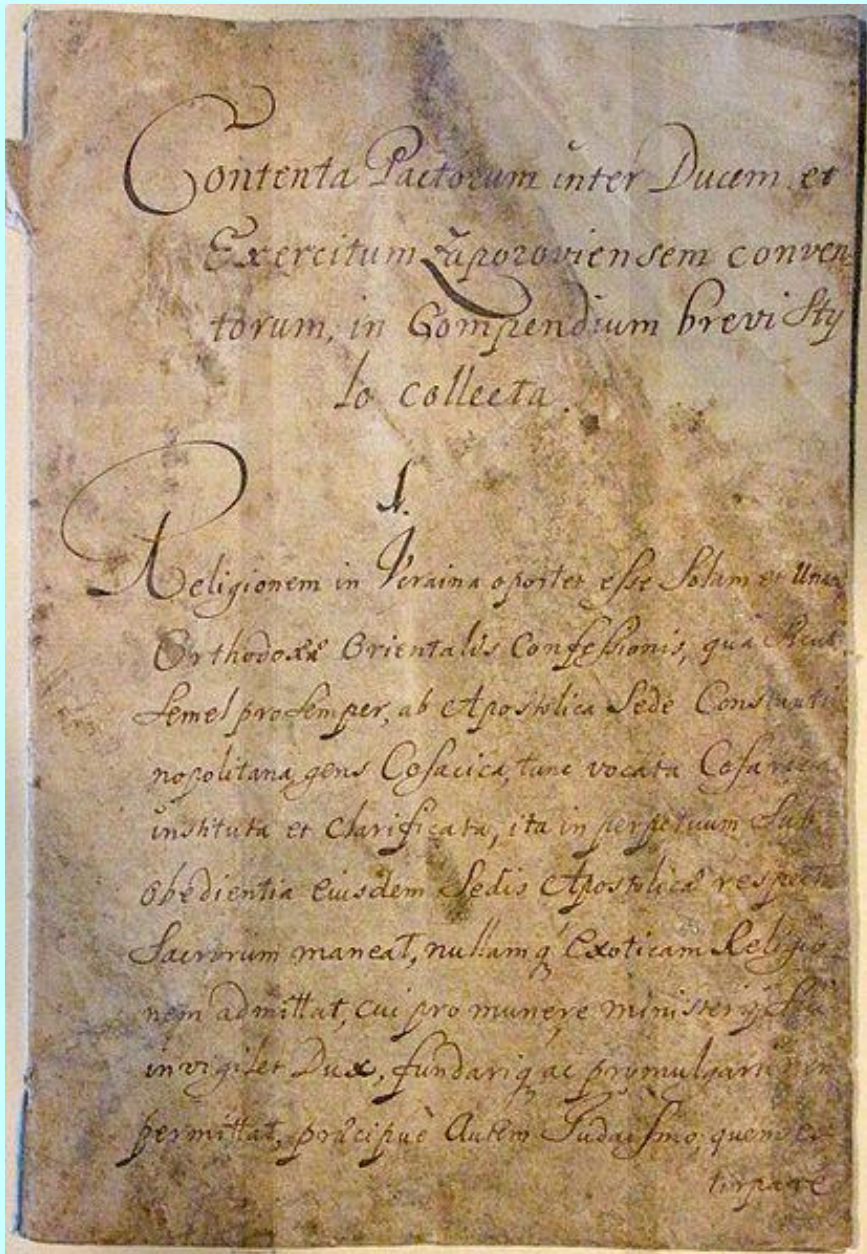 Contenta Pactorum inter Ducem et
Exercitum Zaporoviensem conven
torum, in Compendium brevi Sty
lo collecta.
1.
Religionem in Vcraina oportet esse Solam et Unam
Orthodoxæ Orientalis Confessionis, quâ Sicut
Semel pro Semper, ab Apostolica Sede Constanti
nopolitana, gens Cosacica, tunc vocata
instituta et Clarificata, ita in perpetuum Sub
obedientia eiusdem Sedis Apostolicæ respectu
Sacrorum maneat, nullamq́ Exoticam Religio
nem admittat, cui pro munere ministerij Sui
invigilet Dux, fundariq́ ac promulgari non
permittat, præcipuè Autem Iudaismo, quem ex
tirpare